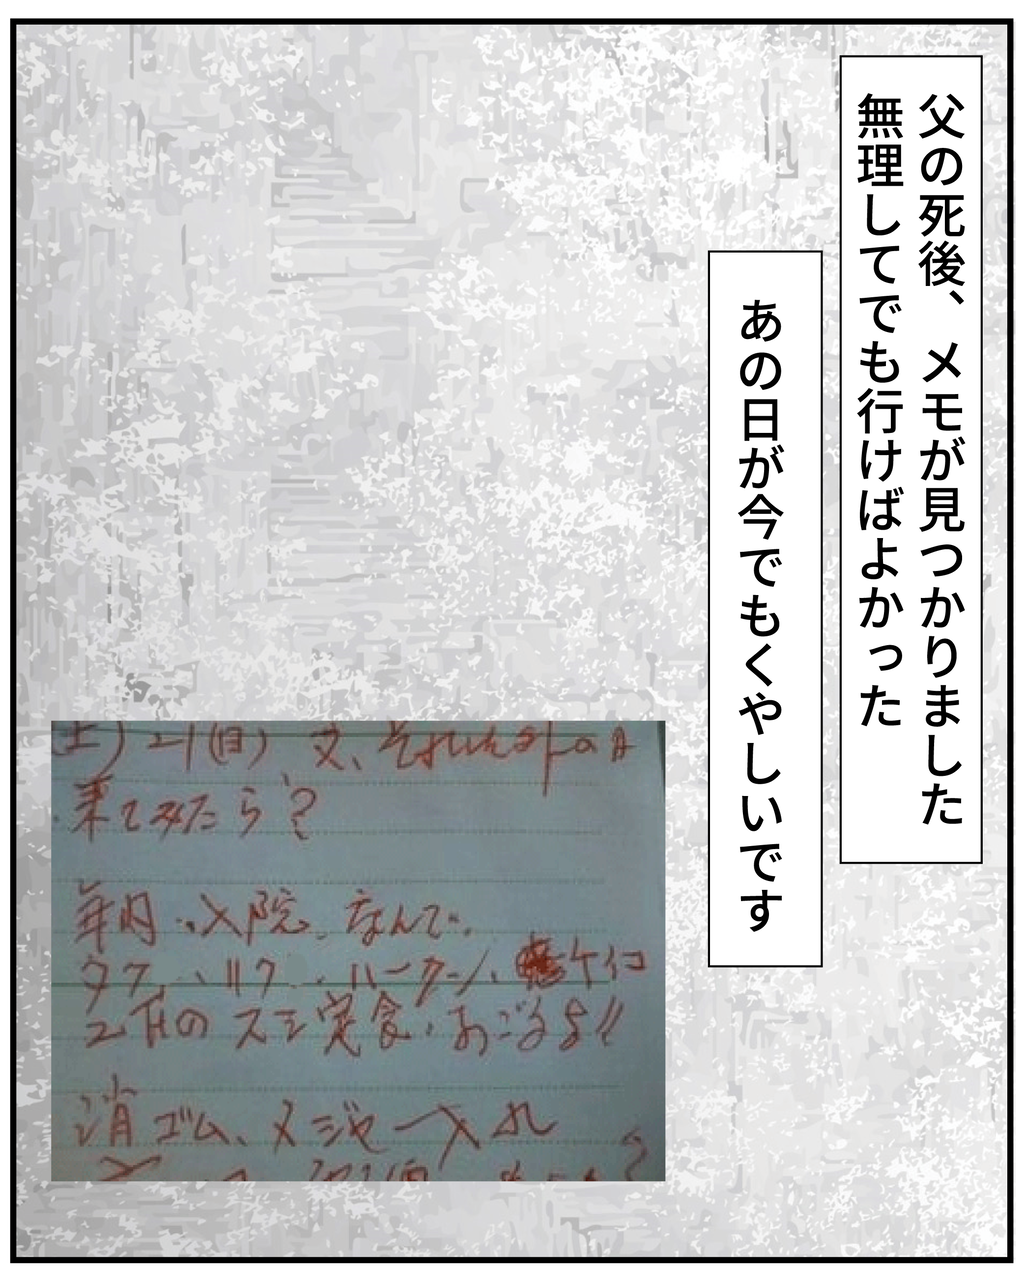 父の死後、メモが見つかりました
無理してでも行けばよかった
あの日が今でもくやしいです
土) 21(日) 又、それ以外の日
来てみたら?
年内 入院 なんで
タケ リク ハークン ケイコ
2Fの スシ定食 おごるよ!!
消ゴム、メジャー入れ